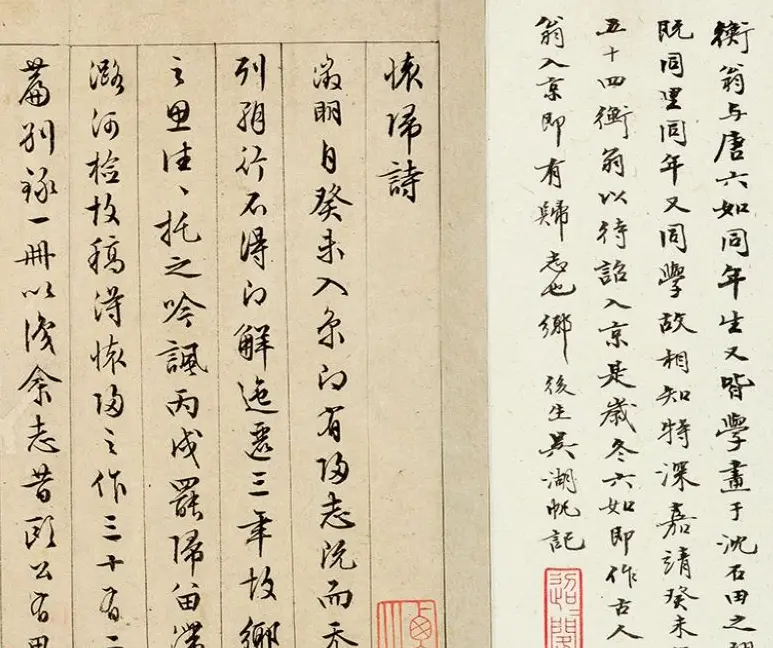 衡翁与唐六如同年生又皆學畫于沈石田之
既同里同年又同學故相知特深嘉靖癸未
五十四衡翁以待詔入京是歲冬六如即作古人
翁入京即有歸志也鄉後生吳湖帆記
懷歸詩
徵明自癸未入京即有歸志既而忝
列朝行不得即解迤邐三年故鄉
之思往〻托之吟諷丙戌罷歸留滯
潞河檢故稿得懷歸之作三十有二
篇別錄一冊以識余志昔歐公有思